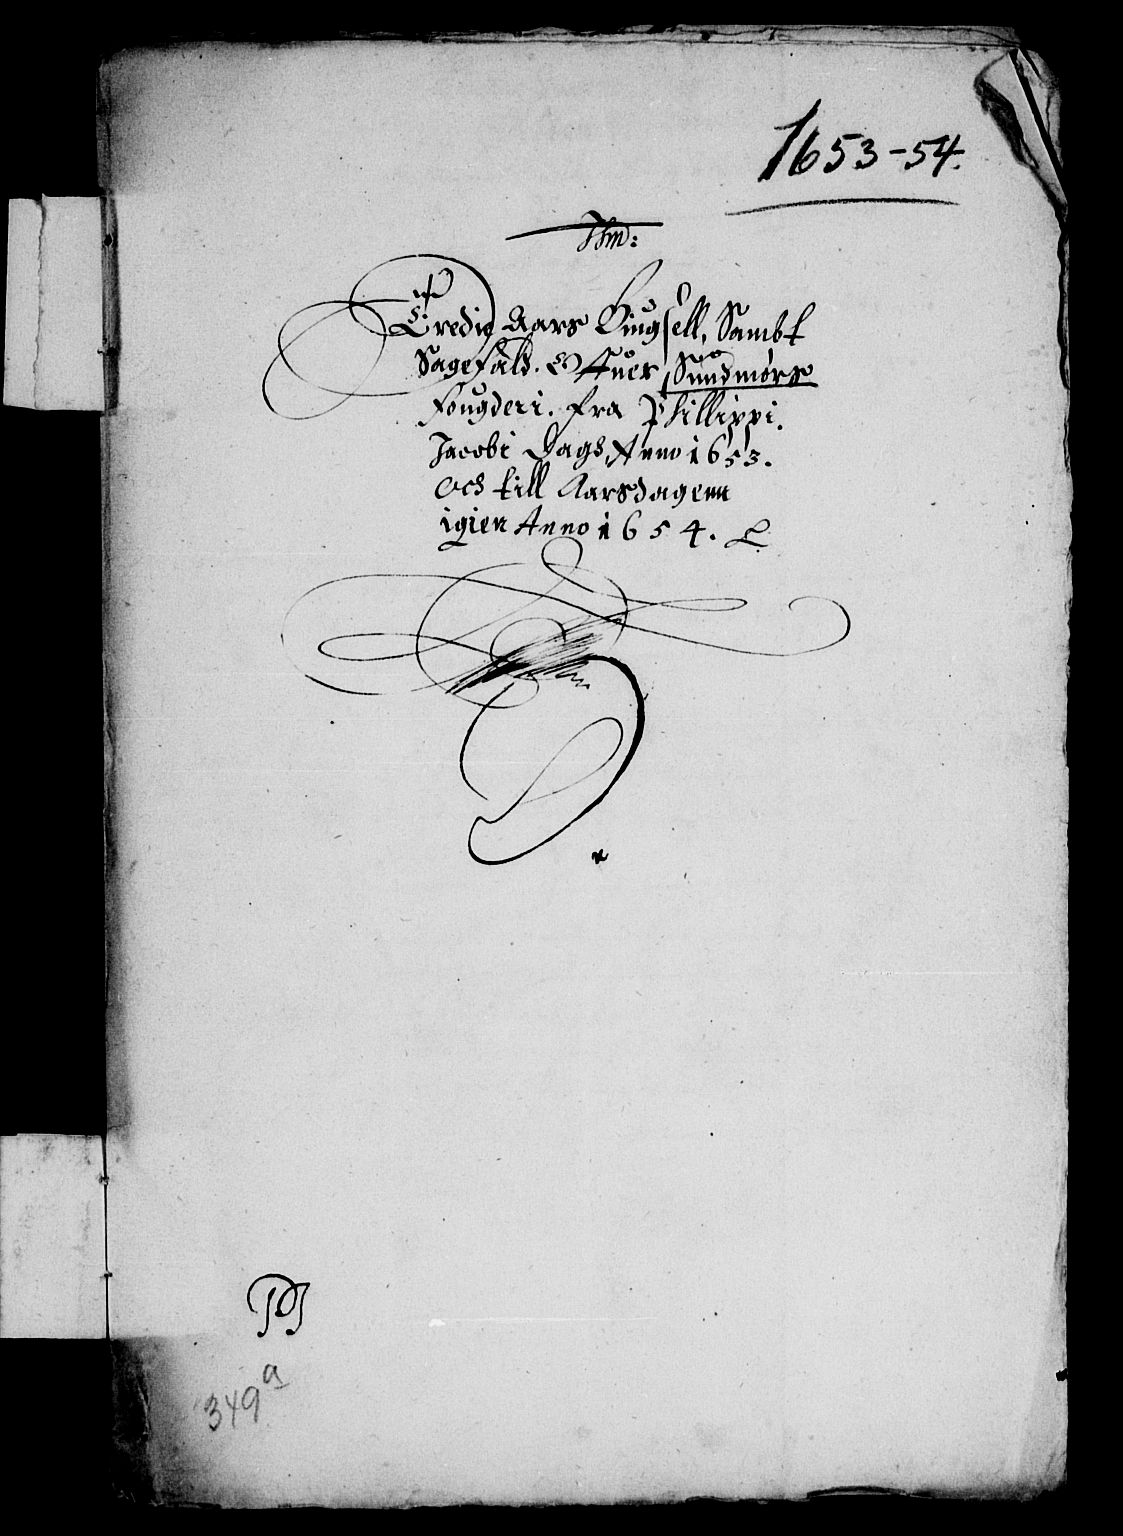 1653-54.
Tredie Aars Bingsell, Sambt
Sagefald. Offuer Sundmørs
fougderi. fra Phillippi.
Jacobi Dags, Anno 1653.
och till Aarsdagenn
igien Anno 1654.
349a